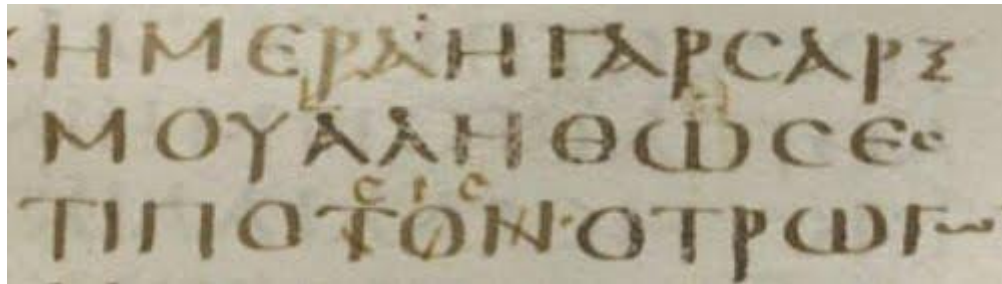 ΗΜΕΡΑΗΓΑΡϹΑΡΞ
ΜΟΥΑΛΗΘΩϹΕϹ
ϹΙϹ
ΤΙΠΟΤΟΝ·ΟΤΡΩΓω